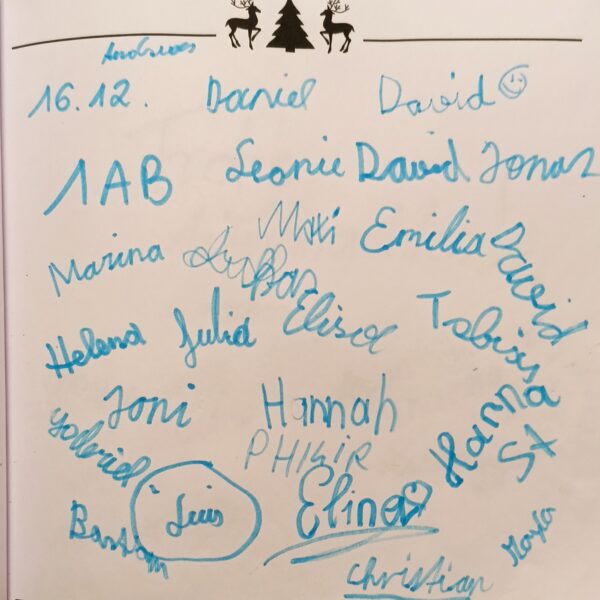 Andreas
16.12. Daniel David
1AB Leonie David Jonas
Maxi Emilia David
Marina
Helena Julia Elisa Tobias
Toni Hannah Hanna St
Valeriel PHILIP
Bastian Luis Elina
Christian